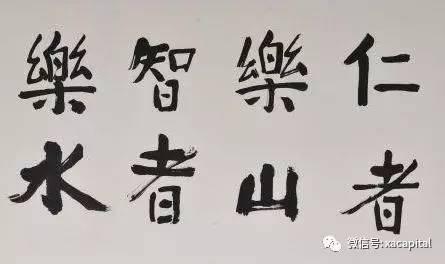 仁者
樂山
智者
樂水
微信号: xacapital